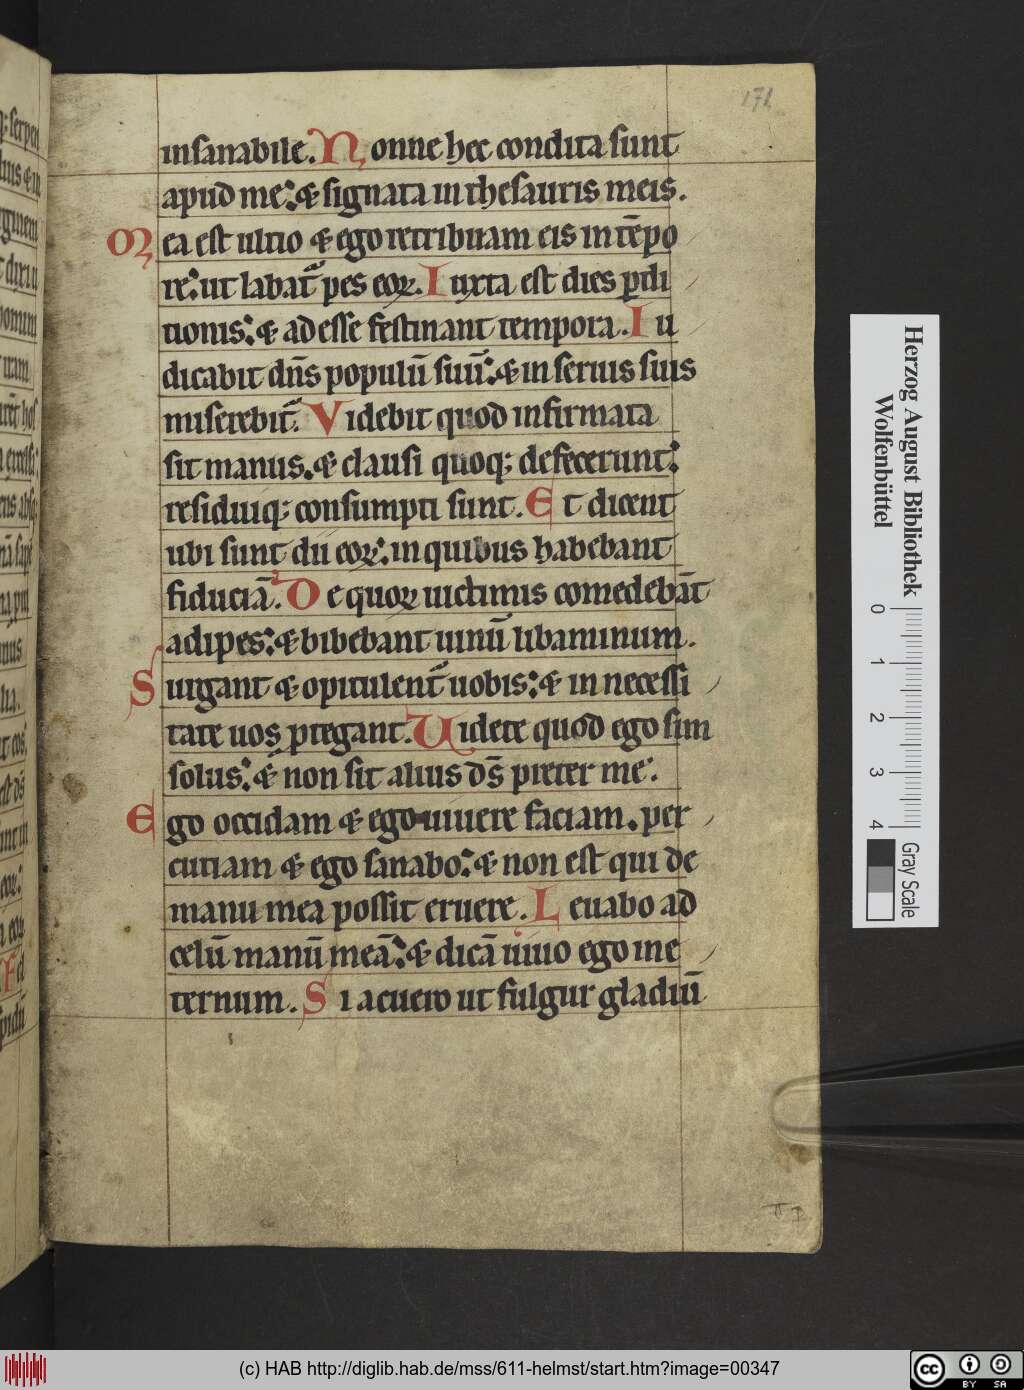 171
insanabile. Nonne hec condita sunt
apud me: & signata in thesauris meis.
Mea est ultio & ego retribuam eis in tēpo
re: ut labat᷑ pes eoꝝ. Iuxta est dies ꝑdi
tionis: & adesse festinant tempora. Iu
dicabit dn̄s populū suū: & in seruis suis
miserebit᷑. Videbit quod infirmata
sit manus. & clausi quoq; defecerunt:
residuiq; consumpti sunt. Et dicent
ubi sunt dii eoꝝ: in quibus habebant
fiduciā. De quoꝝ uictimis comedebāt
adipes: & bibebant uinū libaminum.
Surgant & opitulent᷑ uobis: & in necessi
tate uos ꝓtegant. Uidete quod ego sim
solus: & non sit alius ds̄ preter me.
Ego occidam & ego uiuere faciam. per
cutiam & ego sanabo: & non est qui de
manu mea possit eruere. Leuabo ad
celū manū meā: & dicā uiuo ego in e
ternum. Si acuero ut fulgur gladiū
Herzog August Bibliothek
Wolfenbüttel
0 1 2 3 4
Gray Scale
(c) HAB http://diglib.hab.de/mss/611-helmst/start.htm?image=00347
cc BY SA